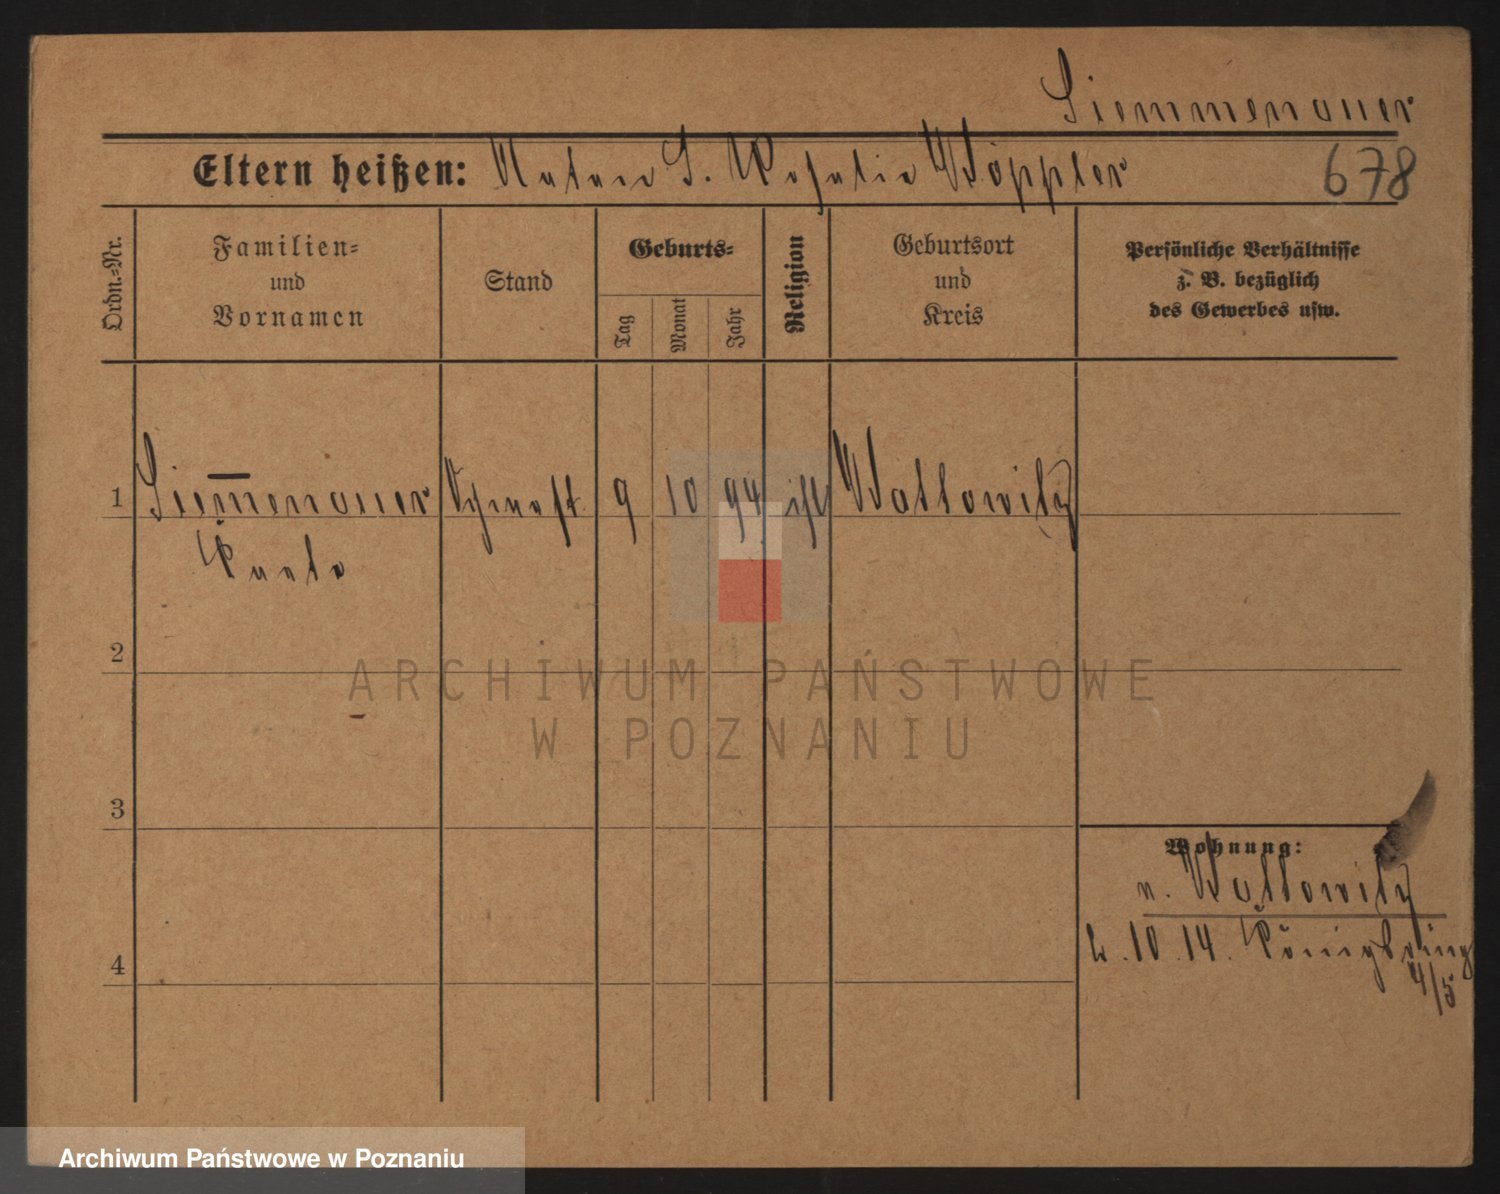 Siemmenauer
Eltern heißen: Natan S. Rosalie Wöppler
678
Ordn.=Nr.
Familien=
und
Vornamen
Stand
Geburts=
Tag
Monat
Jahr
Religion
Geburtsort
und
Kreis
Persönliche Verhältnisse
z. B. bezüglich
des Gewerbes usw.
1 Siemenauer 9 10 94 isr
2
3
4
Wohnung:
v.
2.10.14. Königsring
4/5
ARCHIWUM PAŃSTWOWE
W POZNANIU
Archiwum Państwowe w Poznaniu